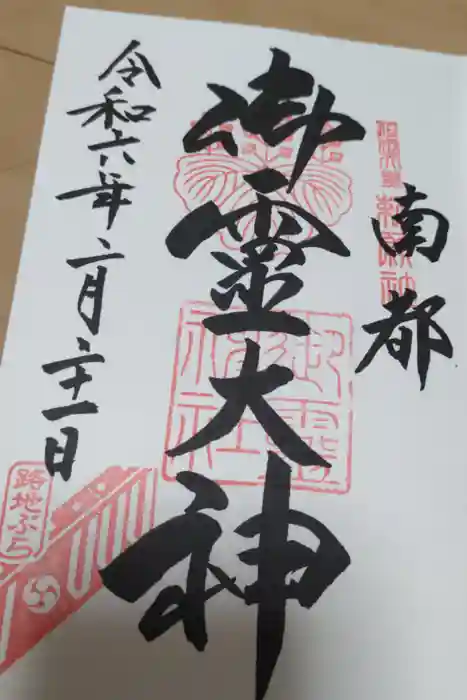 南都
御霊大神
令和六年二月二十一日
御靈神社
路地ぶら